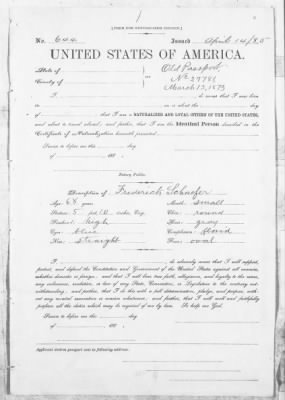 [FORM FOR NATURALIZED CITIZEN.]
No. 644 Issued April 14/85
UNITED STATES OF AMERICA.
State of
County of
Old Passport
No. 27781
March 13, 1873
I, do swear that I was born
in on or about the day
of that I am a NATURALIZED AND LOYAL CITIZEN OF THE UNITED STATES,
and about to travel abroad; and further, that I am the Identical Person described in the
Certificate of Naturalization herewith presented.
Sworn to before me this day
of 188
Notary Public.
Description of Frederick Schaefer
Age: 68 years Mouth: small
Stature: 5 feet 10 inches Eng. Chin: round
Forehead: high Hair: gray
Eyes: blue Complexion: florid
Nose: straight Face: oval
I, do solemnly swear that I will support,
protect, and defend the Constitution and Government of the United States against all enemies,
whether domestic or foreign; and that I will bear true faith, allegiance, and loyalty to the same,
any ordinance, resolution, or law of any State, Convention, or Legislature to the contrary not-
withstanding; and further, that I do this with a full determination, pledge, and purpose, with-
out any mental reservation or evasion whatsoever; and further, that I will well and faithfully
perform all the duties which may be required of me by law. So help me God.
Sworn to before me this day
of 188
Applicant desires passport sent to following address: